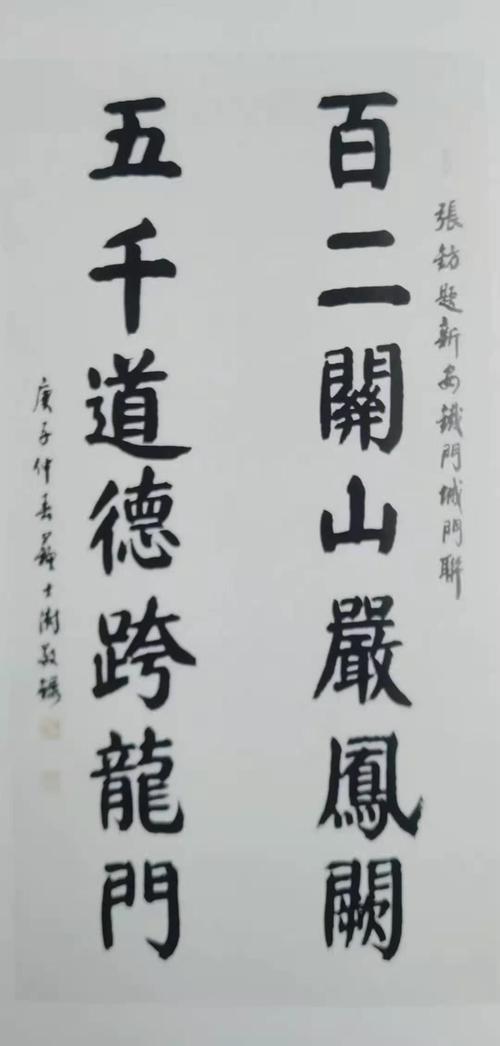 張鈁題新安鐵門城門聯
百二關山嚴鳳闕
五千道德跨龍門
庚子仲春蘇士澍敬録